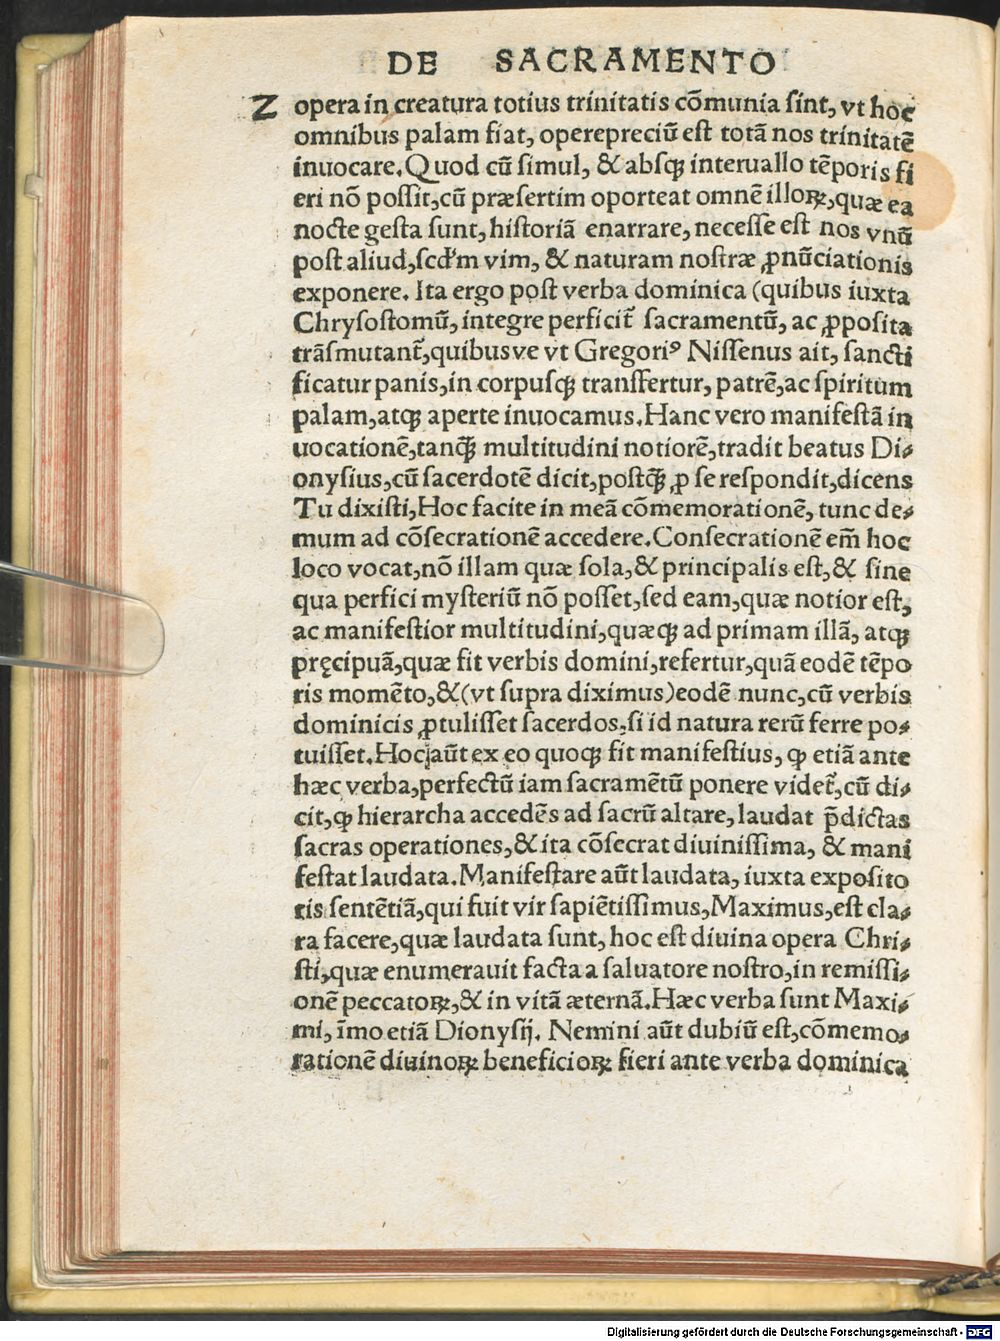 DE SACRAMENTO
Z opera in creatura totius trinitatis cõmunia ſint, vt hoc
omnibus palam fiat, operepreciũ eſt totã nos trinitatẽ
inuocare. Quod cũ ſimul, & abſqꝫ interuallo tẽporis fi
eri nõ poſſit, cũ præſertim oporteat omnẽ illoꝝ, quæ ea
nocte geſta ſunt, hiſtoriã enarrare, neceſſe eſt nos vnũ
poſt aliud, ſcd'm vim, & naturam noſtræ ꝓnũciationis
exponere. Ita ergo poſt verba dominica (quibus iuxta
Chryſoſtomũ, integre perficit̃ ſacramentũ, ac ꝓpoſita
trãſmutant̃, quibusve vt Gregoriꝰ Niſſenus ait, ſancti
ficatur panis, in corpuſqꝫ tranſfertur, patrẽ, ac ſpiritum
palam, atqꝫ aperte inuocamus. Hanc vero manifeſtã in
uocationẽ, tanqꝫ̃ multitudini notiorẽ, tradit beatus Di⸗
onyſius, cũ ſacerdotẽ dicit, poſtqꝫ̃ ꝓ ſe reſpondit, dicens
Tu dixiſti, Hoc facite in meã cõmemorationẽ, tunc de⸗
mum ad cõſecrationẽ accedere. Conſecrationẽ em̃ hoc
loco vocat, nõ illam quæ ſola, & principalis eſt, & ſine
qua perfici myſteriũ nõ poſſet, ſed eam, quæ notior eſt,
ac manifeſtior multitudini, quæqꝫ ad primam illã, atqꝫ
pręcipuã, quæ fit verbis domini, refertur, quã eodẽ tẽpo
ris momẽto, & (vt ſupra diximus) eodẽ nunc, cũ verbis
dominicis ꝓtuliſſet ſacerdos, ſi id natura rerũ ferre po⸗
tuiſſet. Hoc aũt ex eo quoqꝫ fit manifeſtius, ꝙ etiã ante
hæc verba, perfectũ iam ſacramẽtũ ponere videt̃, cũ di⸗
cit, ꝙ hierarcha accedẽs ad ſacrũ altare, laudat p̃dictas
ſacras operationes, & ita cõſecrat diuiniſſima, & mani
feſtat laudata. Manifeſtare aũt laudata, iuxta expoſito
ris ſentẽtiã, qui fuit vir ſapiẽtiſſimus, Maximus, eſt cla⸗
ra facere, quæ laudata ſunt, hoc eſt diuina opera Chri⸗
ſti, quæ enumerauit facta a ſaluatore noſtro, in remiſſi⸗
onẽ peccatoꝝ, & in vitã æternã. Hæc verba ſunt Maxi⸗
mi, ĩmo etiã Dionyſij. Nemini aũt dubiũ eſt, cõmemo⸗
rationẽ diuinoꝝ beneficioꝝ fieri ante verba dominica
Digitalisierung gefördert durch die Deutsche Forschungsgemeinschaft - DFG